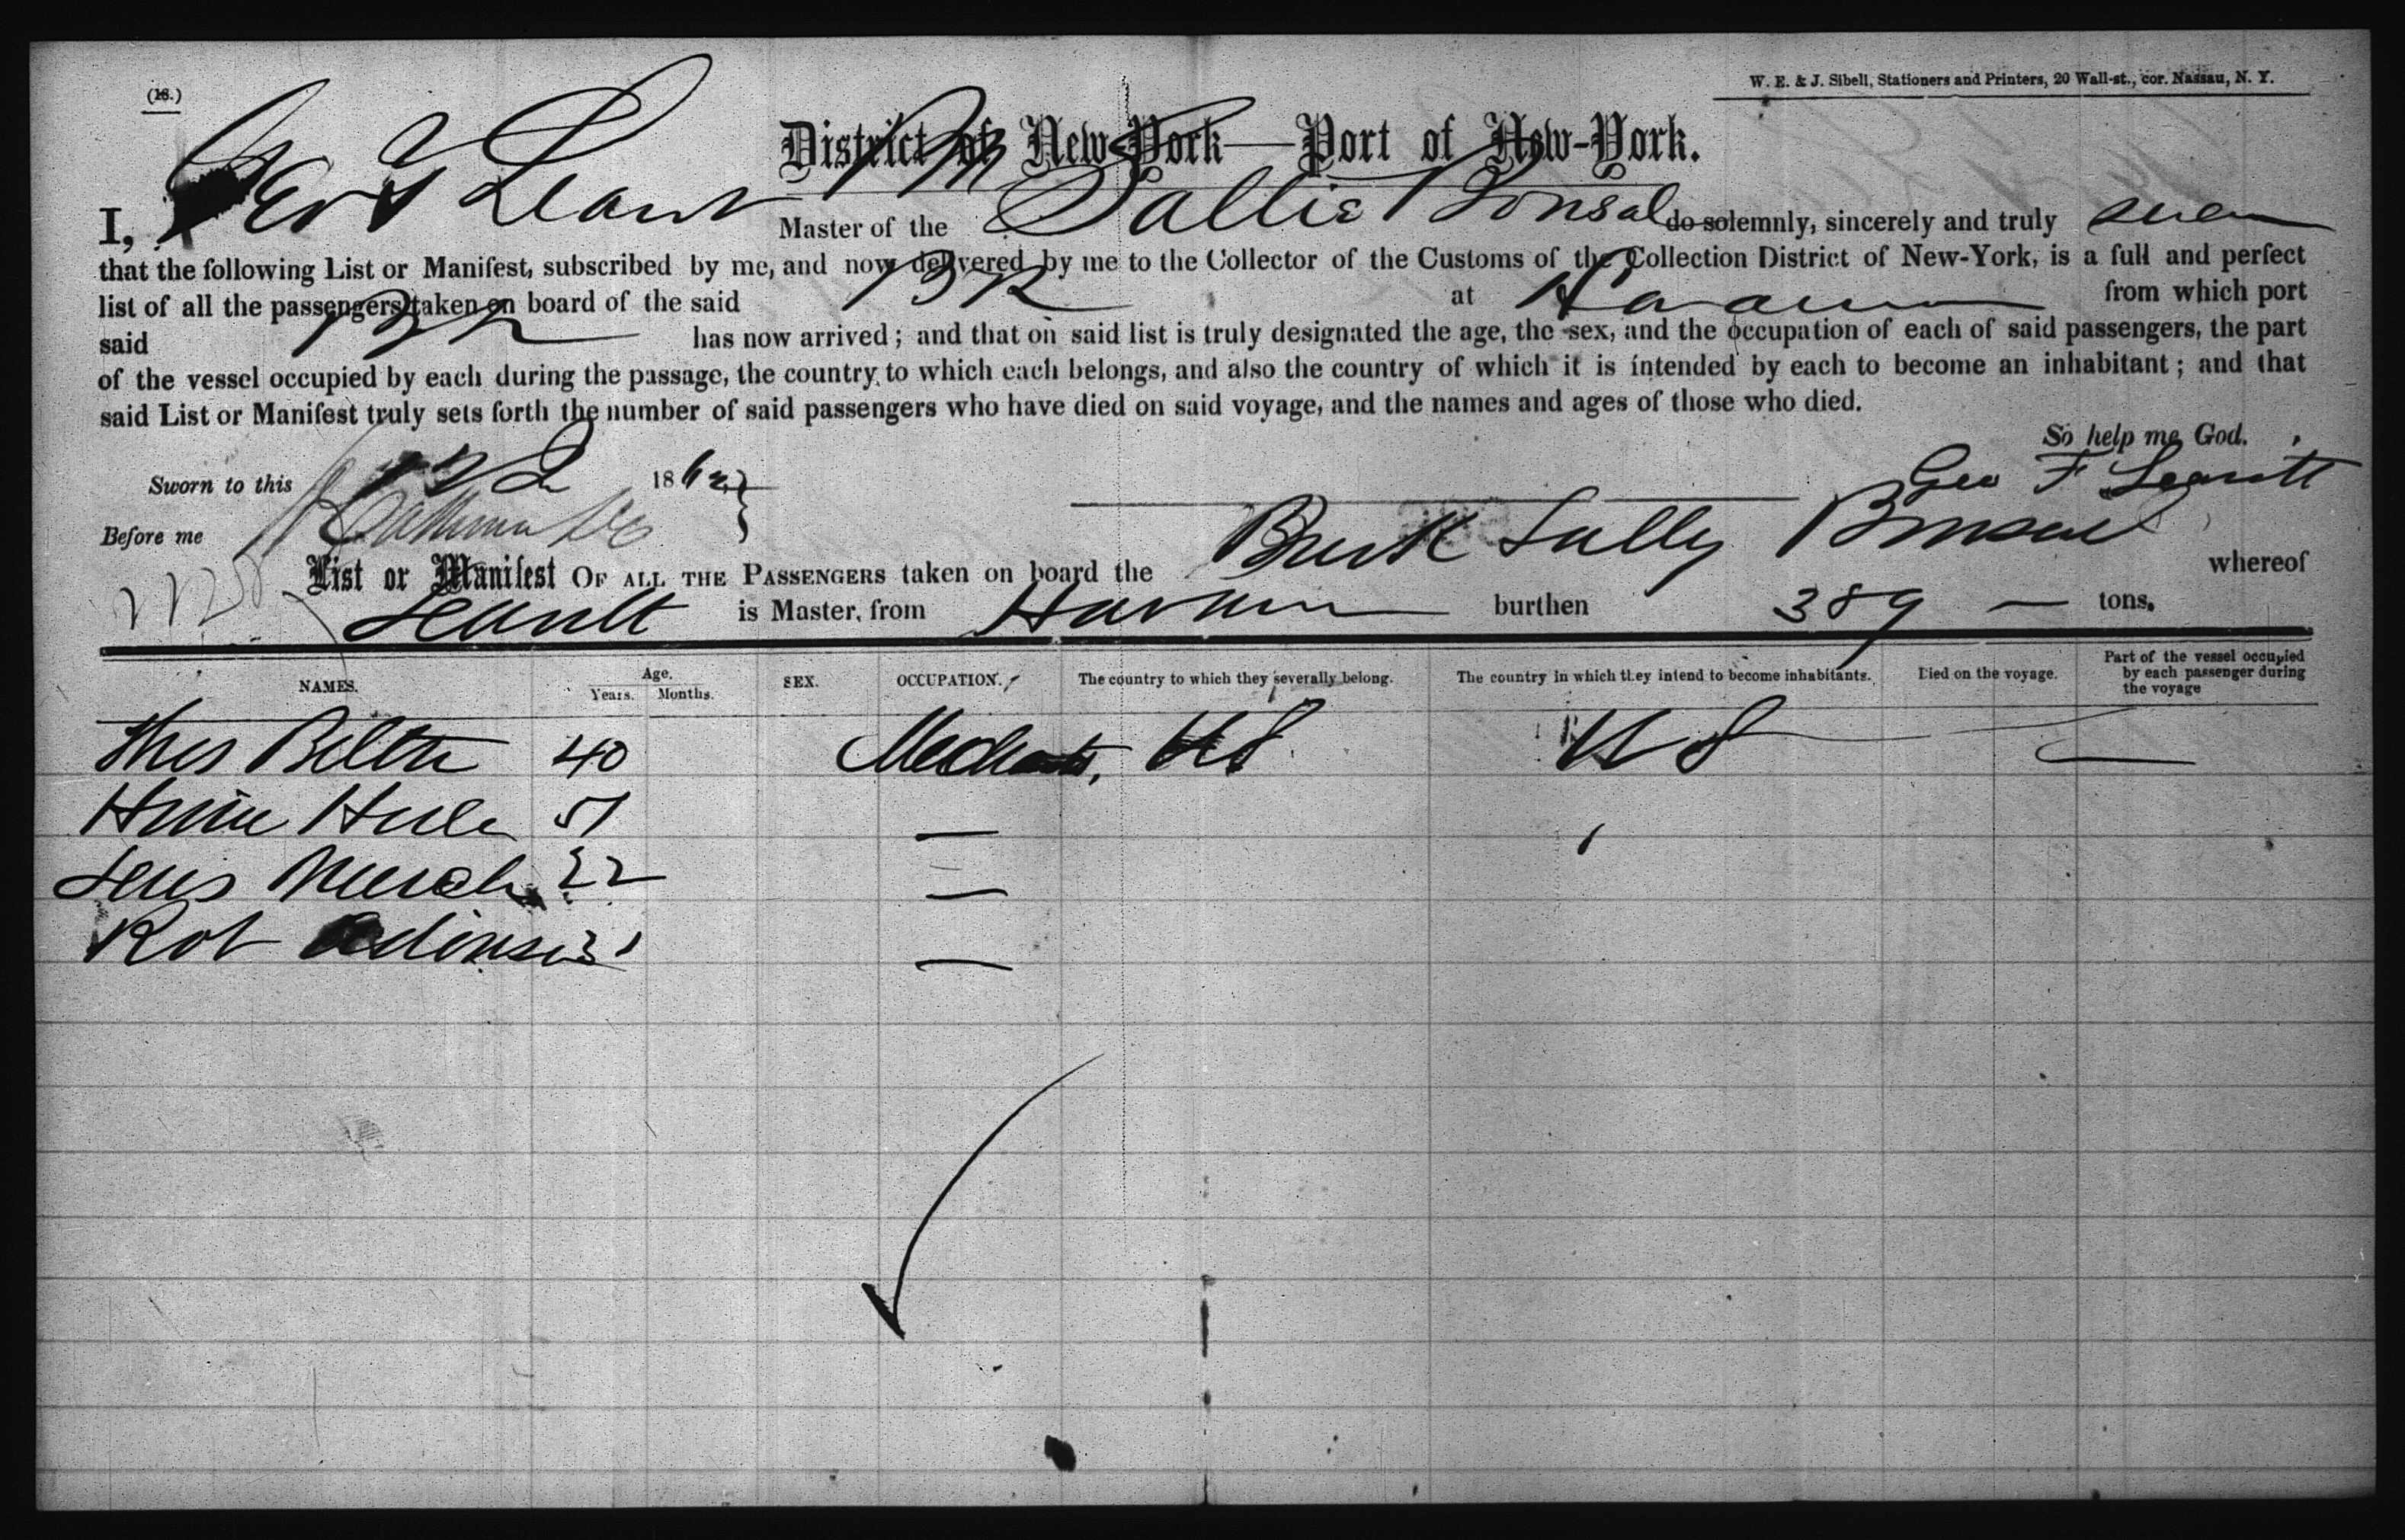 (18.)
W. E. & J. Sibell, Stationers and Printers, 20 Wall-st., cor. Nassau, N. Y.
District of New-York—Port of New-York.
I, Geo F Master of the Sallie Bonsal do solemnly, sincerely and truly swear
that the following List or Manifest, subscribed by me, and now delivered by me to the Collector of the Customs of the Collection District of New-York, is a full and perfect
list of all the passengers taken on board of the said BK at Havana from which port
said Bk has now arrived; and that on said list is truly designated the age, the sex, and the occupation of each of said passengers, the part
of the vessel occupied by each during the passage, the country to which each belongs, and also the country of which it is intended by each to become an inhabitant; and that
said List or Manifest truly sets forth the number of said passengers who have died on said voyage, and the names and ages of those who died.
So help me God.
Sworn to this 186
Geo F Leavitt
Before me
List or Manifest OF ALL THE PASSENGERS taken on board the Bark Sally Bonsal whereof
Leavitt is Master, from Havana burthen 389 — tons.
NAMES. Age. Years. Months. SEX. OCCUPATION. The country to which they severally belong. The country in which they intend to become inhabitants. Died on the voyage. Part of the vessel occupied by each passenger during the voyage
40 US US
51 —
22 —
Rob 31 —